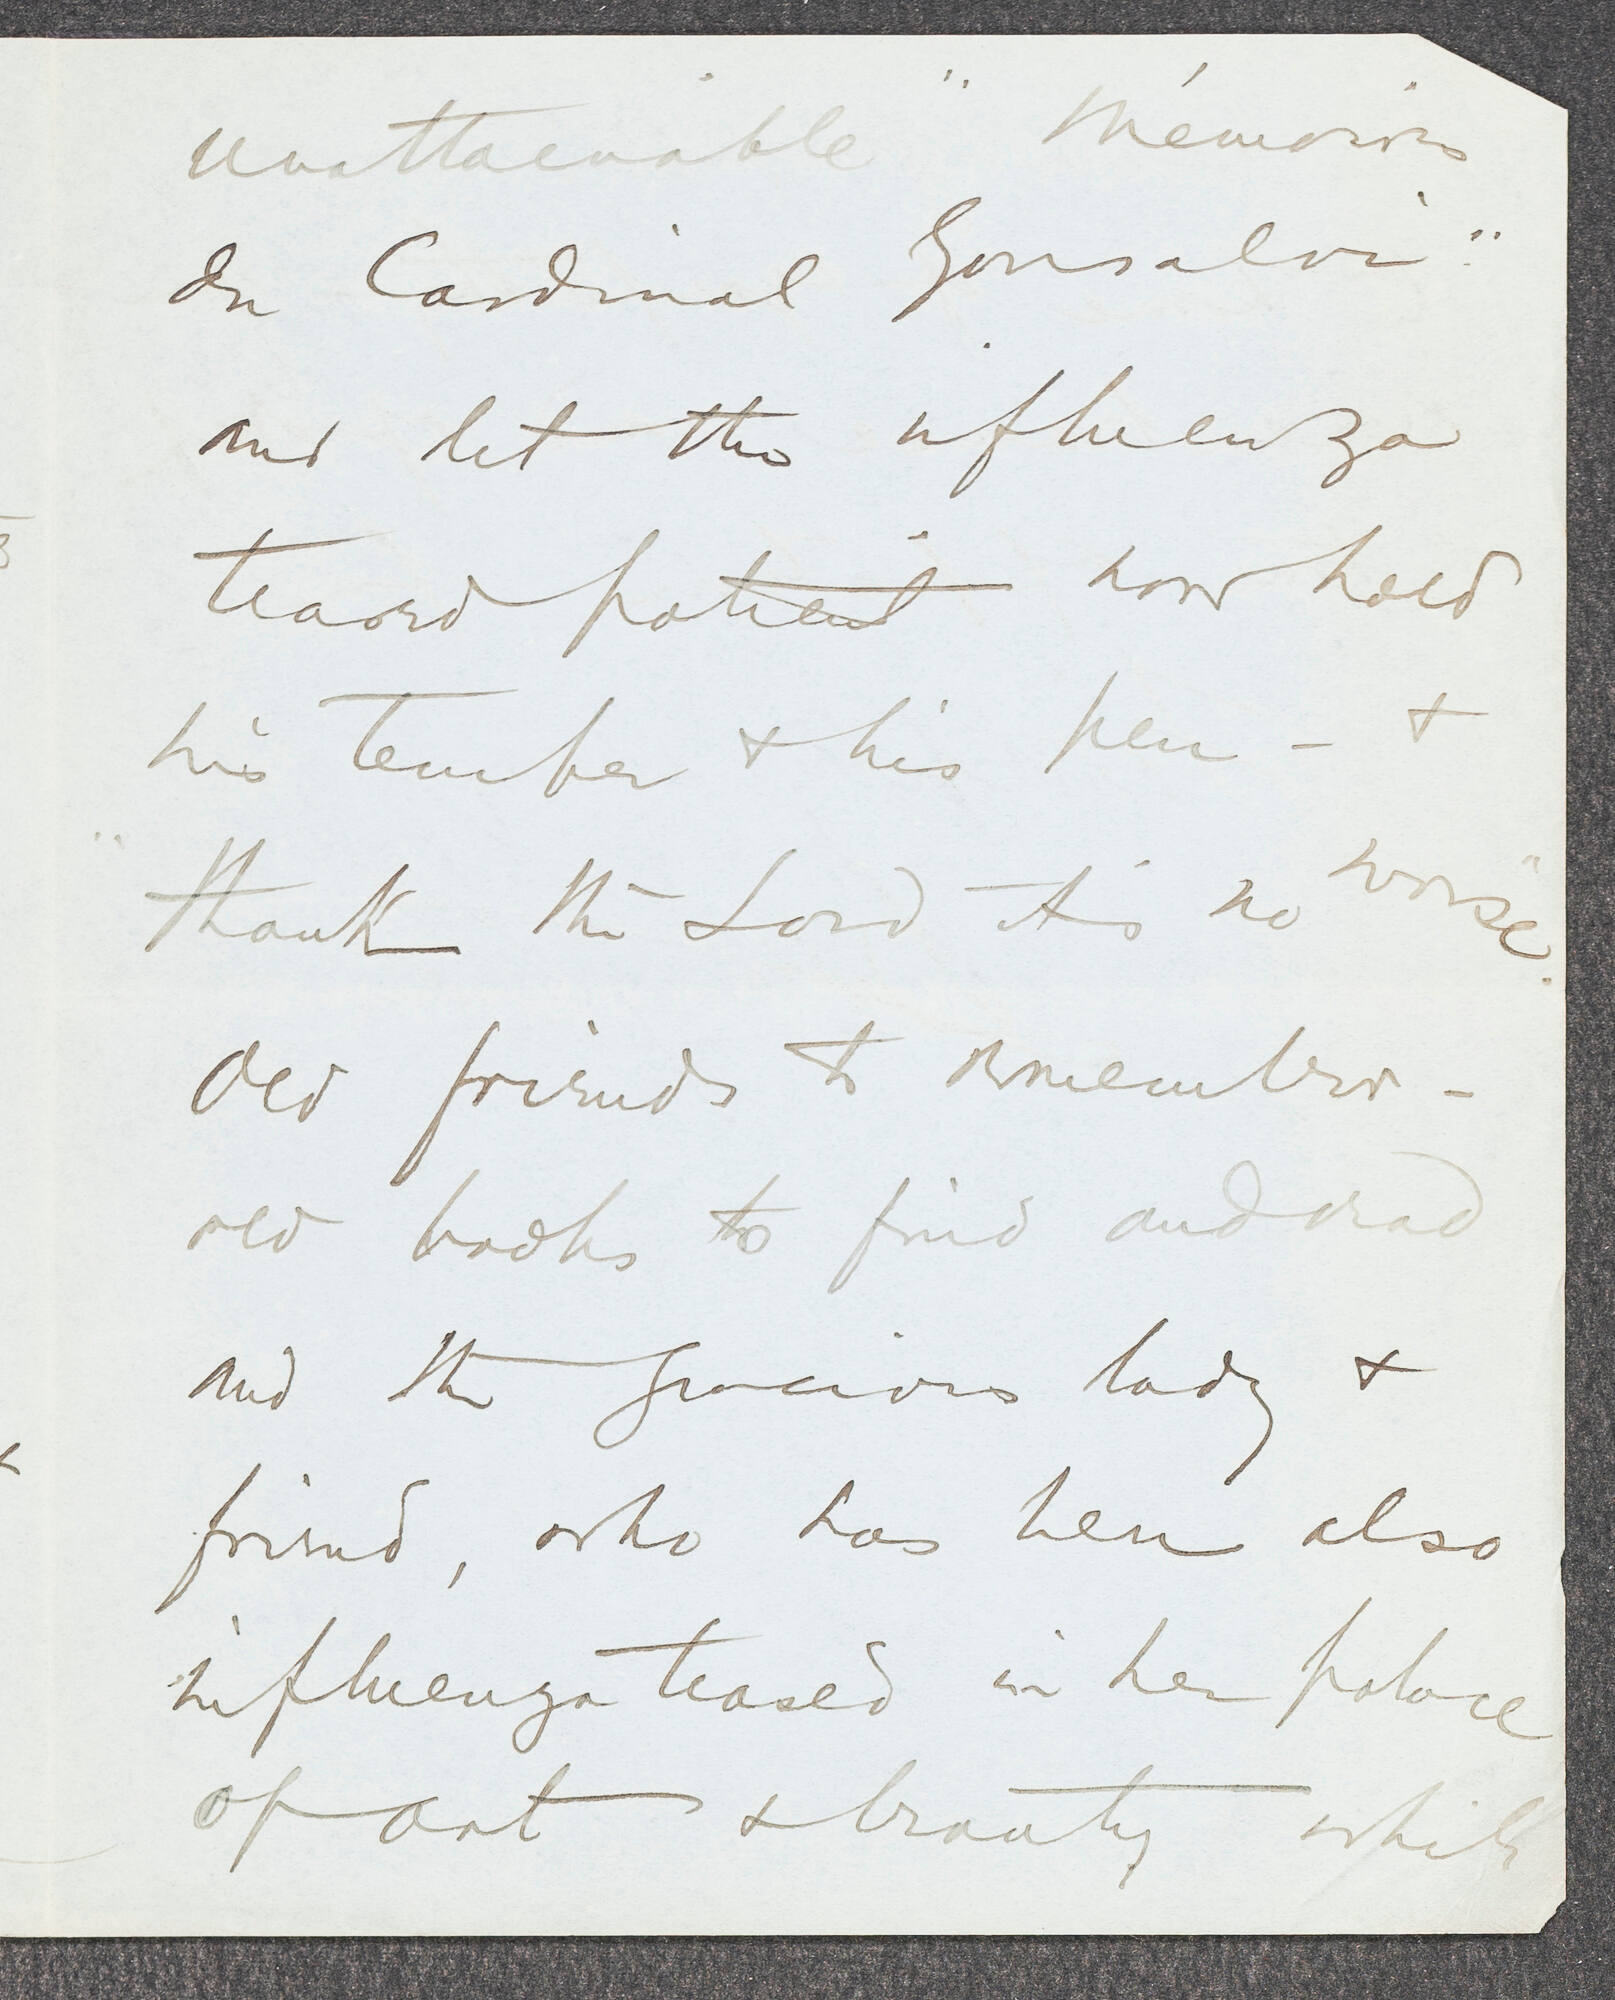 unattainable "Mémoires
du Cardinal Gonsalvi"
and let the influenza
teased patient now hold
his temper + his pen – +
"thank the Lord it is no worse".
Old friends to remember –
old books to find and read
and the gracious lady +
friend, who has been also
influenza teased in her palace
of art + beauty while